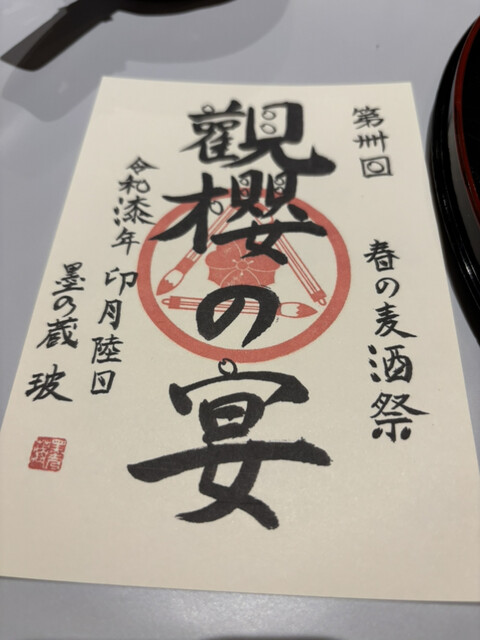 第卅回
春の麦酒祭
觀櫻の宴
令和漆年
卯月陸日
墨乃蔵 玻